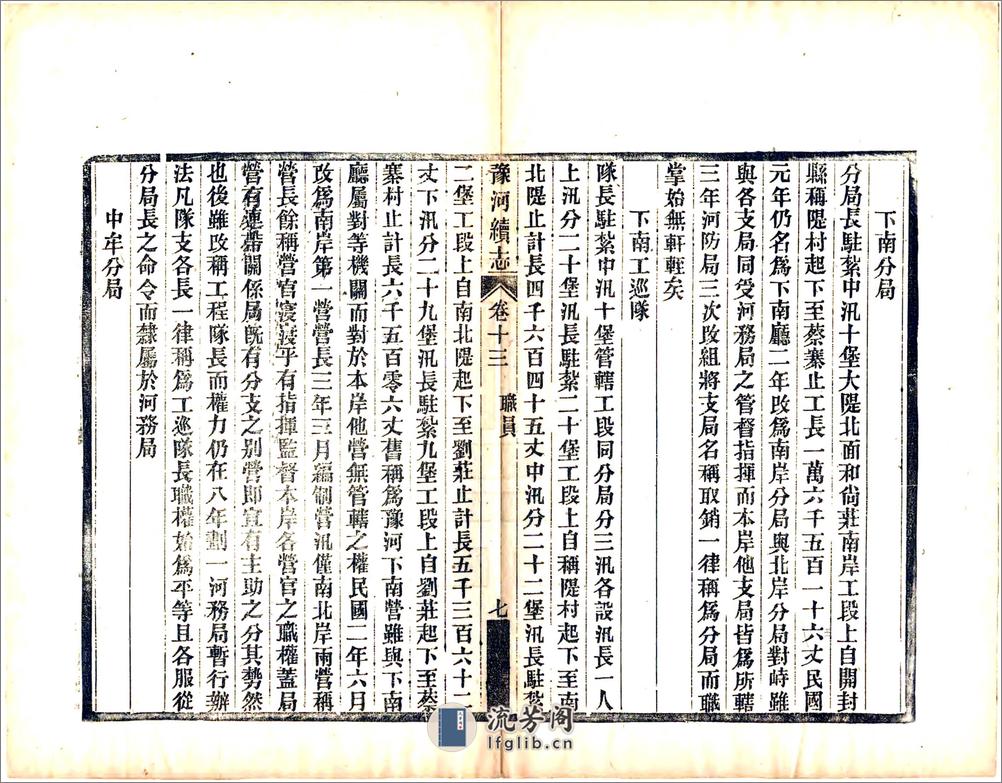 下南分局
分局長駐紮中汛十堡大隄北面和尙莊南岸工段上自開封
縣稱隄村起下至蔡寨止工長一萬六千五百一十六丈民國
元年仍名爲下南廳二年改爲南岸分局與北岸分局對峙雖
與各支局同受河務局之管督指揮而本岸他支局皆爲所轄
三年河防局三次改組將支局名稱取銷一律稱爲分局而職
掌始無軒輊矣
下南工巡隊
隊長駐紮中汛十堡管轄工段同分局分三汛各設汛長一人
上汛分二十堡汛長駐紮二十堡工段上自稱隄村起下至南
北隄止計長四千六百四十五丈中汛分二十二堡汛長駐紮
豫河續志 卷十三 職員 七
二堡工段上自南北隄起下至劉莊止計長五千三百六十二
丈下汛分二十九堡汛長駐紮九堡工段上自劉莊起下至蔡
寨村止計長六千五百零六丈舊稱爲豫河下南營雖與下南
廳屬對等機關而對於本岸他營無管轄之權民國二年六月
改爲南岸第一營營長三年三月編制營汛僅南北岸兩營稱
營長餘稱營官寖寖乎有指揮監督本岸各營官之職權蓋局
營有連帶關係局既有分支之別營卽宜有主助之分其勢然
也後雖改稱工程隊長而權力仍在八年劃一河務局暫行辦
法凡隊支各長一律稱爲工巡隊長職權始爲平等且各服從
分局長之命令而隸屬於河務局
中牟分局
流芳阁
lfglib.cn